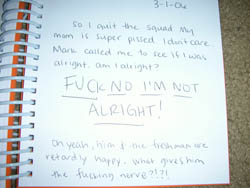 3-1-06
So I quit the squad. My
mom is super pissed. I dont care.
Mark called me to see if I was
alright. am I alright?
FUCK NO I'M NOT
ALRIGHT!
Oh yeah, him & the freshman are
retardly happy. What gives him
the fucking nerve?!?!